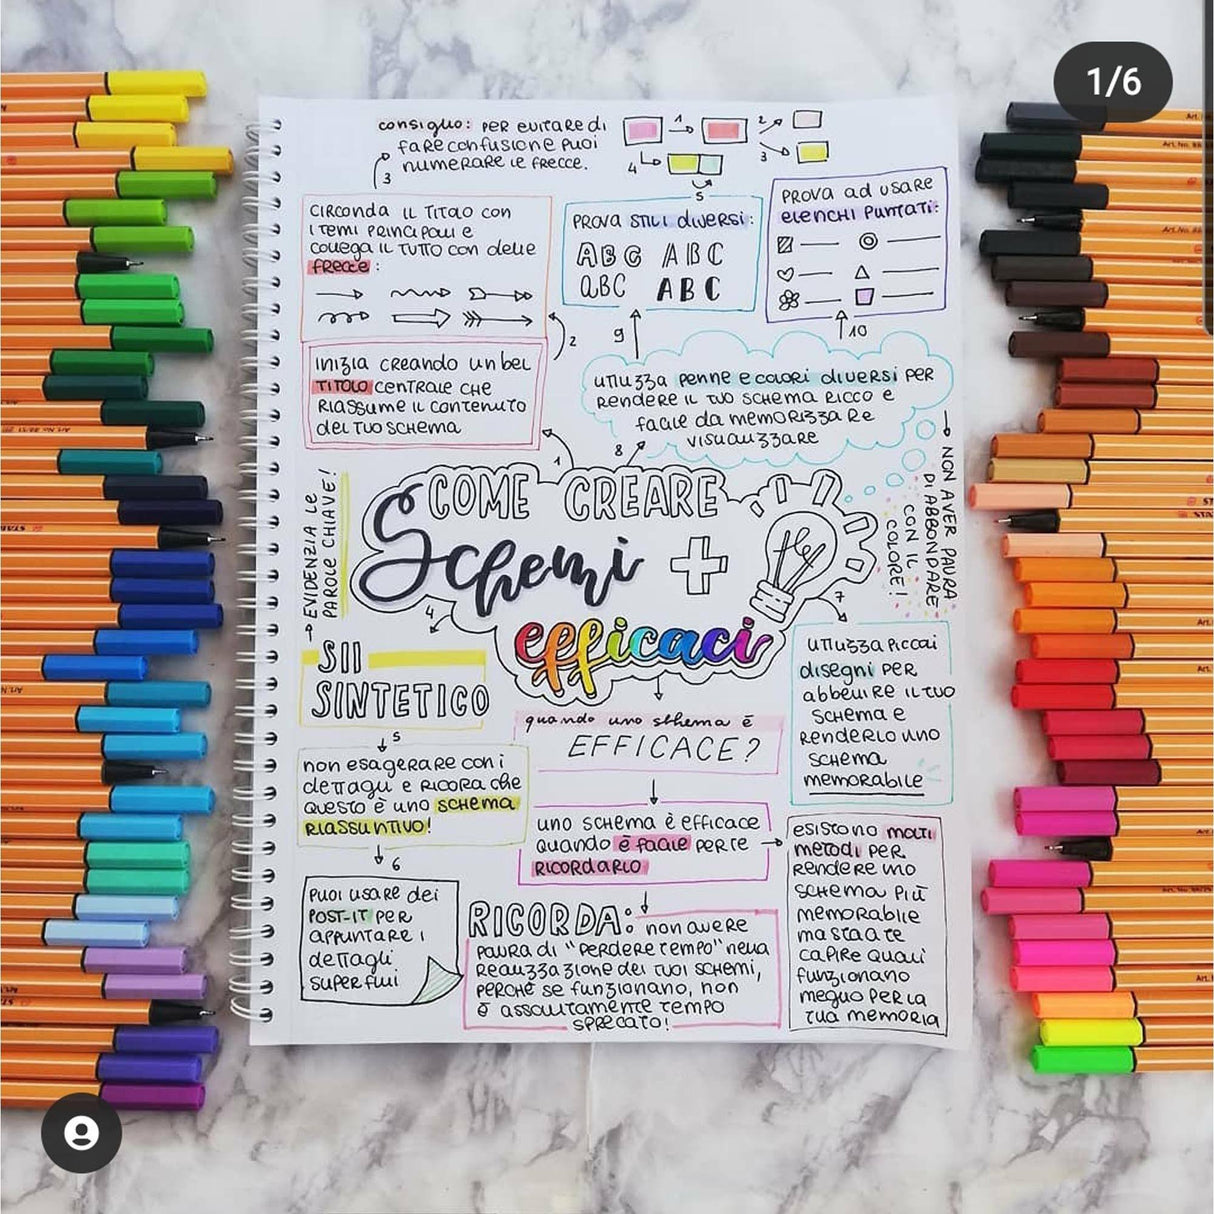 1/6
consiglio: per evitare di
fare confusione puoi
numerare le frecce.
1
2
3
4
5
3
circonda il titolo con
i temi principali e
collega il tutto con delle
frecce:
prova stili diversi:
ABC ABC
ABC ABC
prova ad usare
elenchi puntati:
2
9
10
inizia creando un bel
titolo centrale che
riassume il contenuto
del tuo schema
utilizza penne e colori diversi per
rendere il tuo schema ricco e
facile da memorizzare e
visualizzare
1
8
evidenzia le
parole chiave!
non aver paura
di abbondare
con il
colore!
COME CREARE
Schemi +
efficaci
4
7
SII
SINTETICO
quando uno schema è
EFFICACE?
utilizza piccoli
disegni per
abbellire il tuo
schema e
renderlo uno
schema
memorabile
5
non esagerare con i
dettagli e ricorda che
questo è uno schema
riassuntivo!
uno schema è efficace
quando è facile per te
ricordarlo
esistono molti
metodi per
rendere uno
schema più
memorabile
ma sta a te
capire quali
funzionano
meglio per la
tua memoria
6
puoi usare dei
post-it per
appuntare i
dettagli
superflui
RICORDA: non avere
paura di "perdere tempo" nella
realizzazione dei tuoi schemi,
perché se funzionano, non
è assolutamente tempo
sprecato!